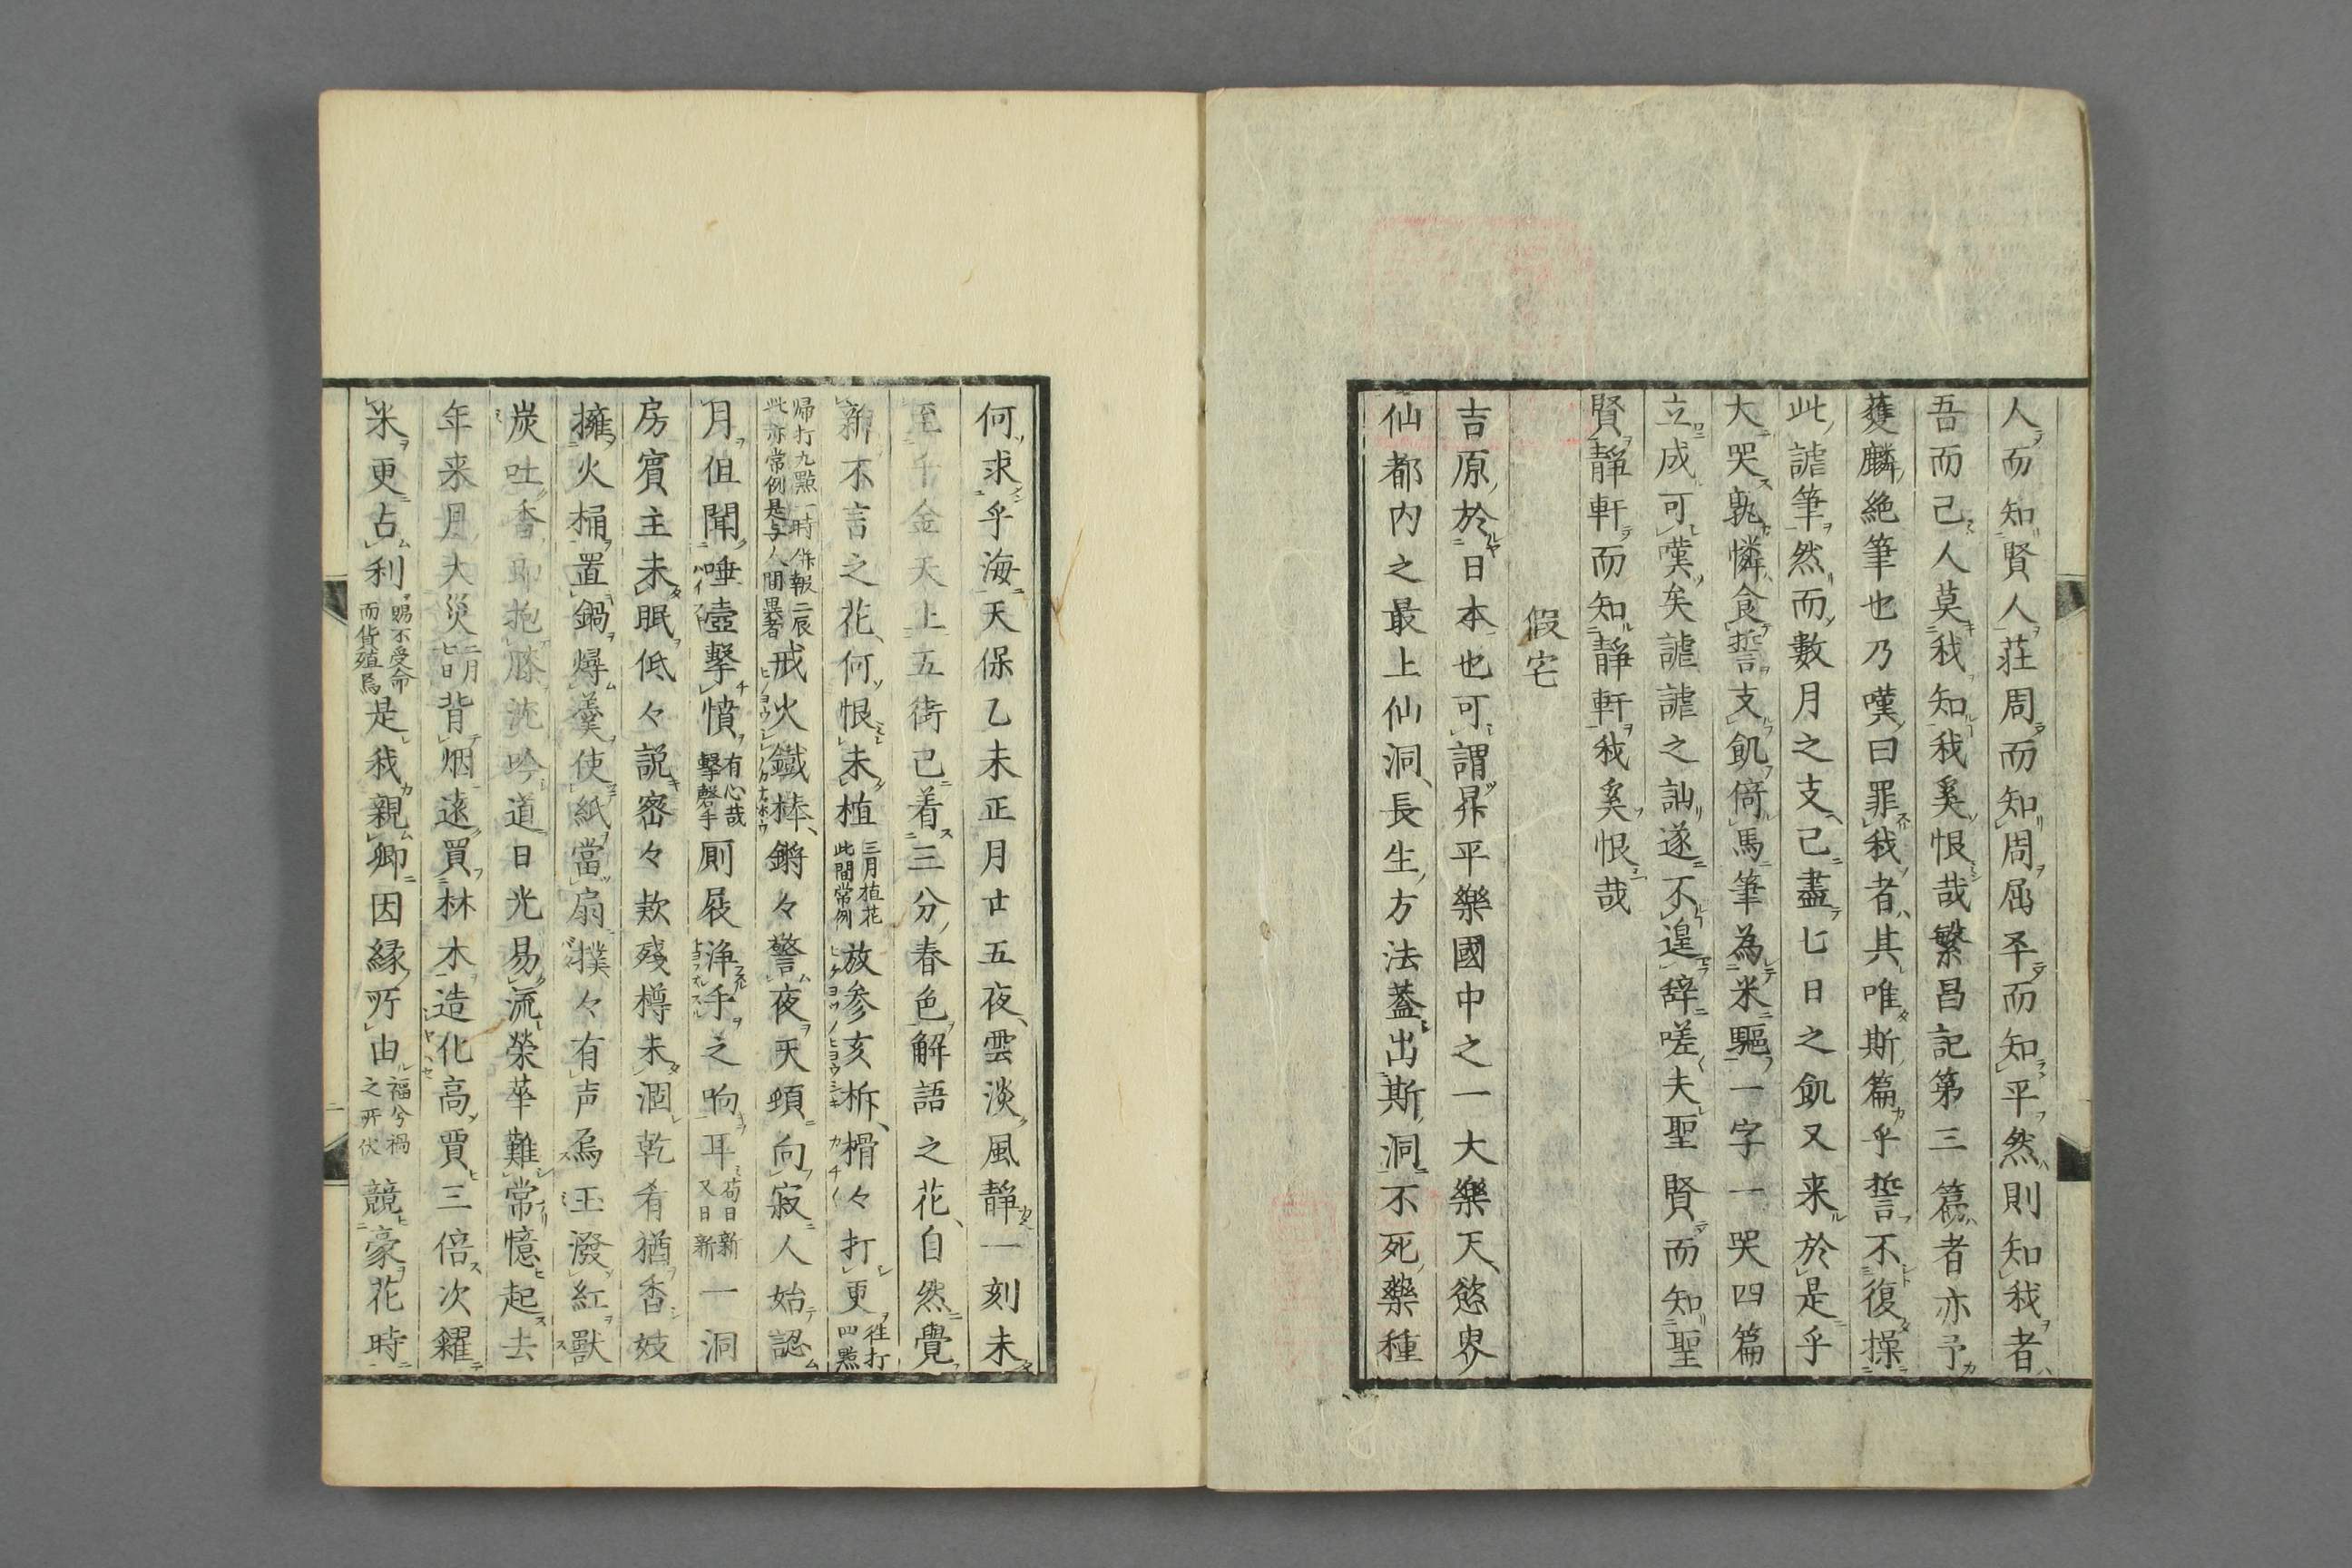 人而知賢人莊周而知周屈平而知平然則知我者
吾而己人莫我知我奚恨哉繁昌記第三篇者亦予
獲麟絶筆也乃嘆曰罪我者其唯斯篇乎誓不復操
此謔筆然而數月之支己盡七日之飢又来於是乎
大哭孰憐食誓支飢倚馬筆為米驅一字一哭四篇
立成可嘆矣謔謔之訕遂不遑辞嗟夫聖賢而知聖
賢靜軒而知靜軒我奚恨哉
假宅
吉原於日本也可謂昇平樂國中之一大樂天慾界
仙都内之最上仙洞長生方法蓋出斯洞不死藥種
何求乎海天保乙未正月廿五夜雲淡風静一刻未
至千金天上五街己着三分春色解語之花自然覺
新不言之花何恨未植三月植花此間常例放参亥柝榾々打更往打四點
帰打九點一時併報二辰此亦常例是与人間異者戒火鐵棒鏘々警夜天頭向寂人始認
月但聞唾壺擊憤有心哉擊磬手厠屐浄手之响耳苟日新又日新一洞
房賓主未眠低々説密々款殘樽未涸乾肴猶香妓
擁火桶置鍋燖羹使紙當扇撲々有声烏玉潑紅獸
炭吐香即抱膝沈吟道日光易流榮華難常憶起去
年来月大災二月七日背烟遠買林木造化高賈三倍次糴
米更占利賜不受命而貨殖焉是我親卿因縁所由福兮禍之所伏競豪花時
二